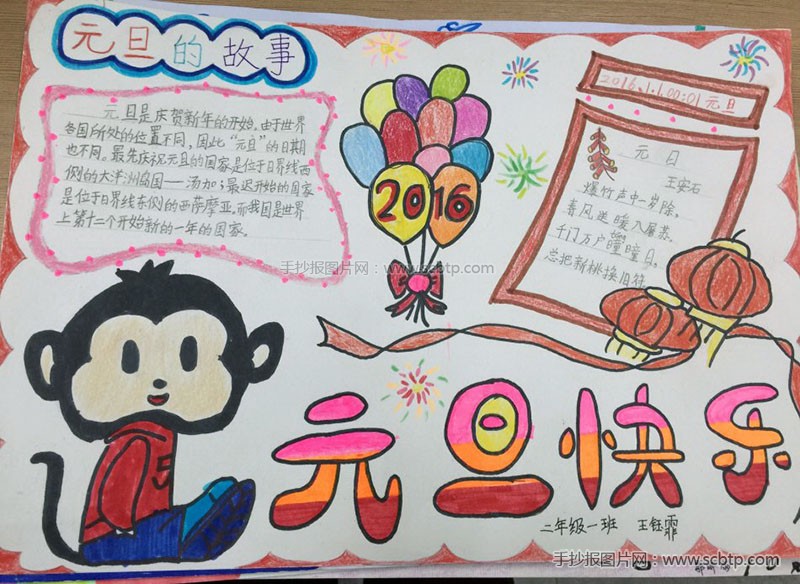 元旦的故事
元旦是庆贺新年的开始,由于世界
各国所处的位置不同,因此“元旦”的日期
也不同。最先庆祝元旦的国家是位于日界线西
侧的大洋洲岛国——汤加;最迟开始的国家
是位于日界线东侧的西萨摩亚。而我国是世界
上第十二个开始新的一年的国家。
2016
2016.1.1.00:01元旦
元日
王安石
爆竹声中一岁除,
春风送暖入屠苏,
千门万户曈曈日,
总把新桃换旧符
手抄报图片网:www.scbtp.com
5
元旦快乐
二年级一班 王钰霏
手抄报图片网:www.scbtp.com